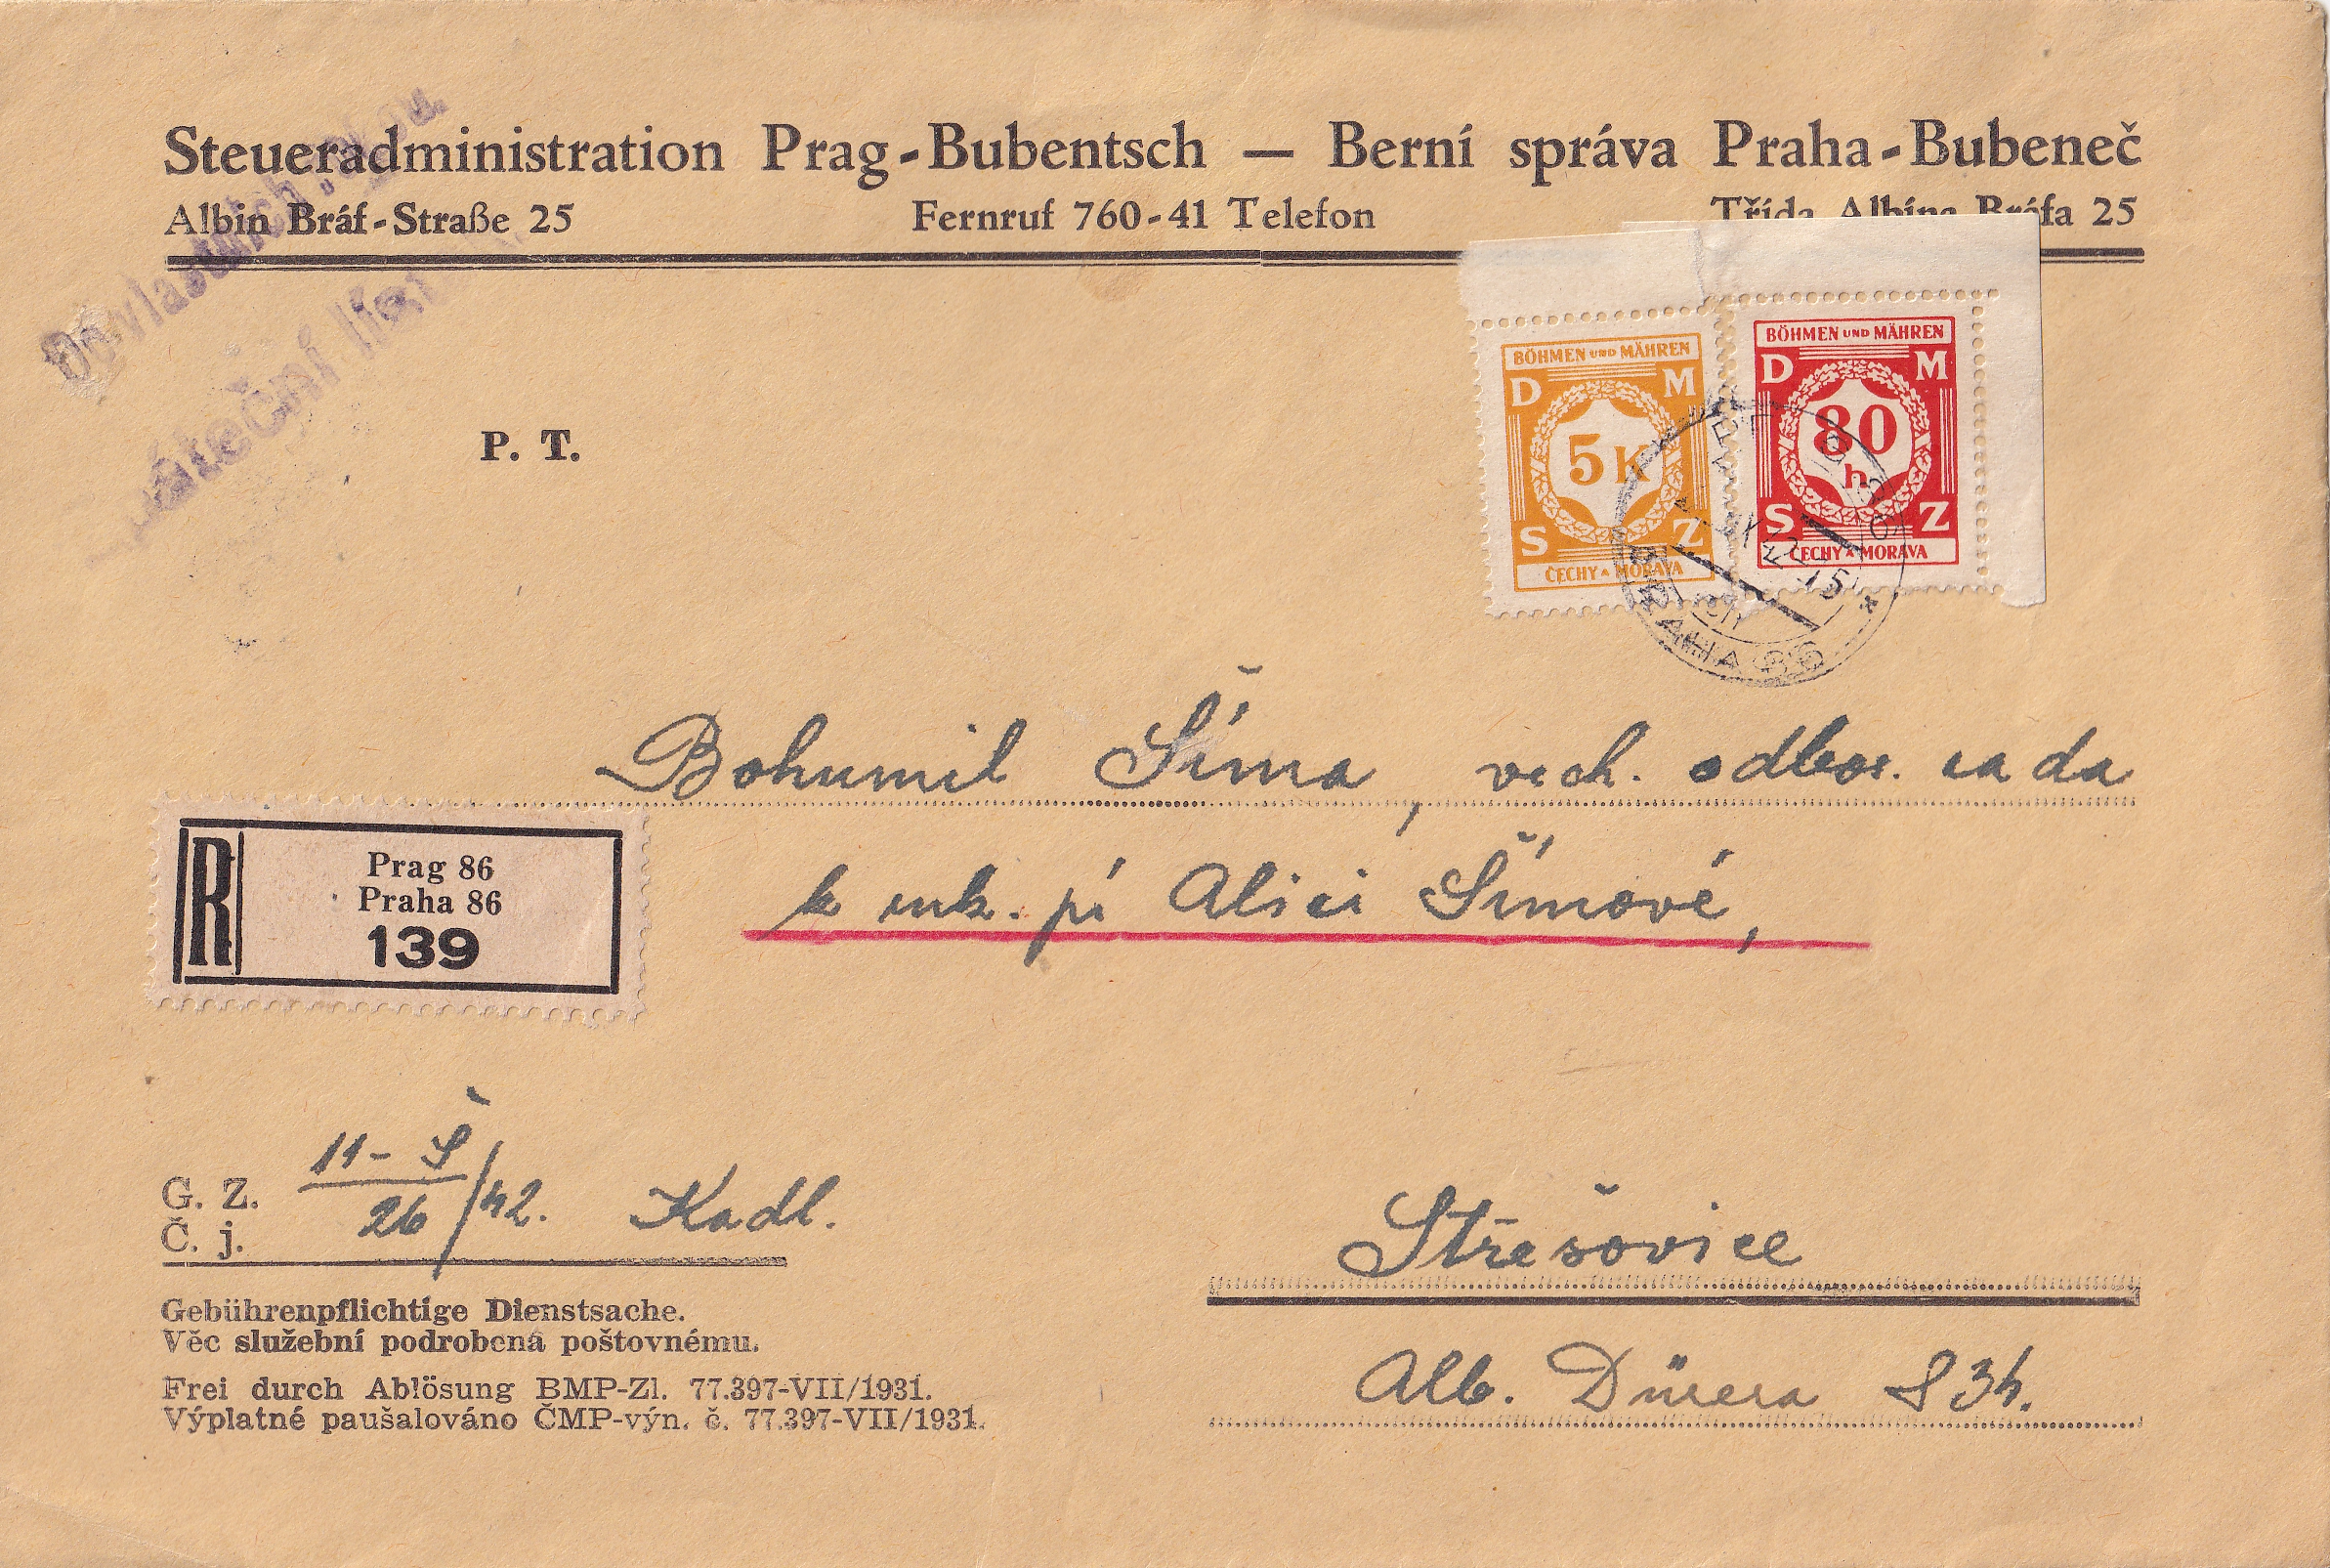 Do vlastních rukou.
Steueradministration Prag-Bubentsch — Berní správa Praha-Bubeneč
Albin Bráf-Straße 25 Fernruf 760-41 Telefon Třída Albína Bráfa 25
BÖHMEN UND MÄHREN
D M
5 K
S Z
ČECHY MORAVA
BÖHMEN UND MÄHREN
D M
80
h
S Z
ČECHY MORAVA
PRAHA 86
P. T.
Bohumil Šíma, vrch. odbor. rada
k ruk. pí Alici Šímové,
R
Prag 86
Praha 86
139
11-Š
G. Z.
26/42. Kadl.
Č. j.
Střešovice
Gebührenpflichtige Dienstsache.
Věc služební podrobená poštovnému.
Alb. Dürera 834.
Frei durch Ablösung BMP-Zl. 77.397-VII/1931.
Výplatné paušalováno ČMP-výn. č. 77.397-VII/1931.